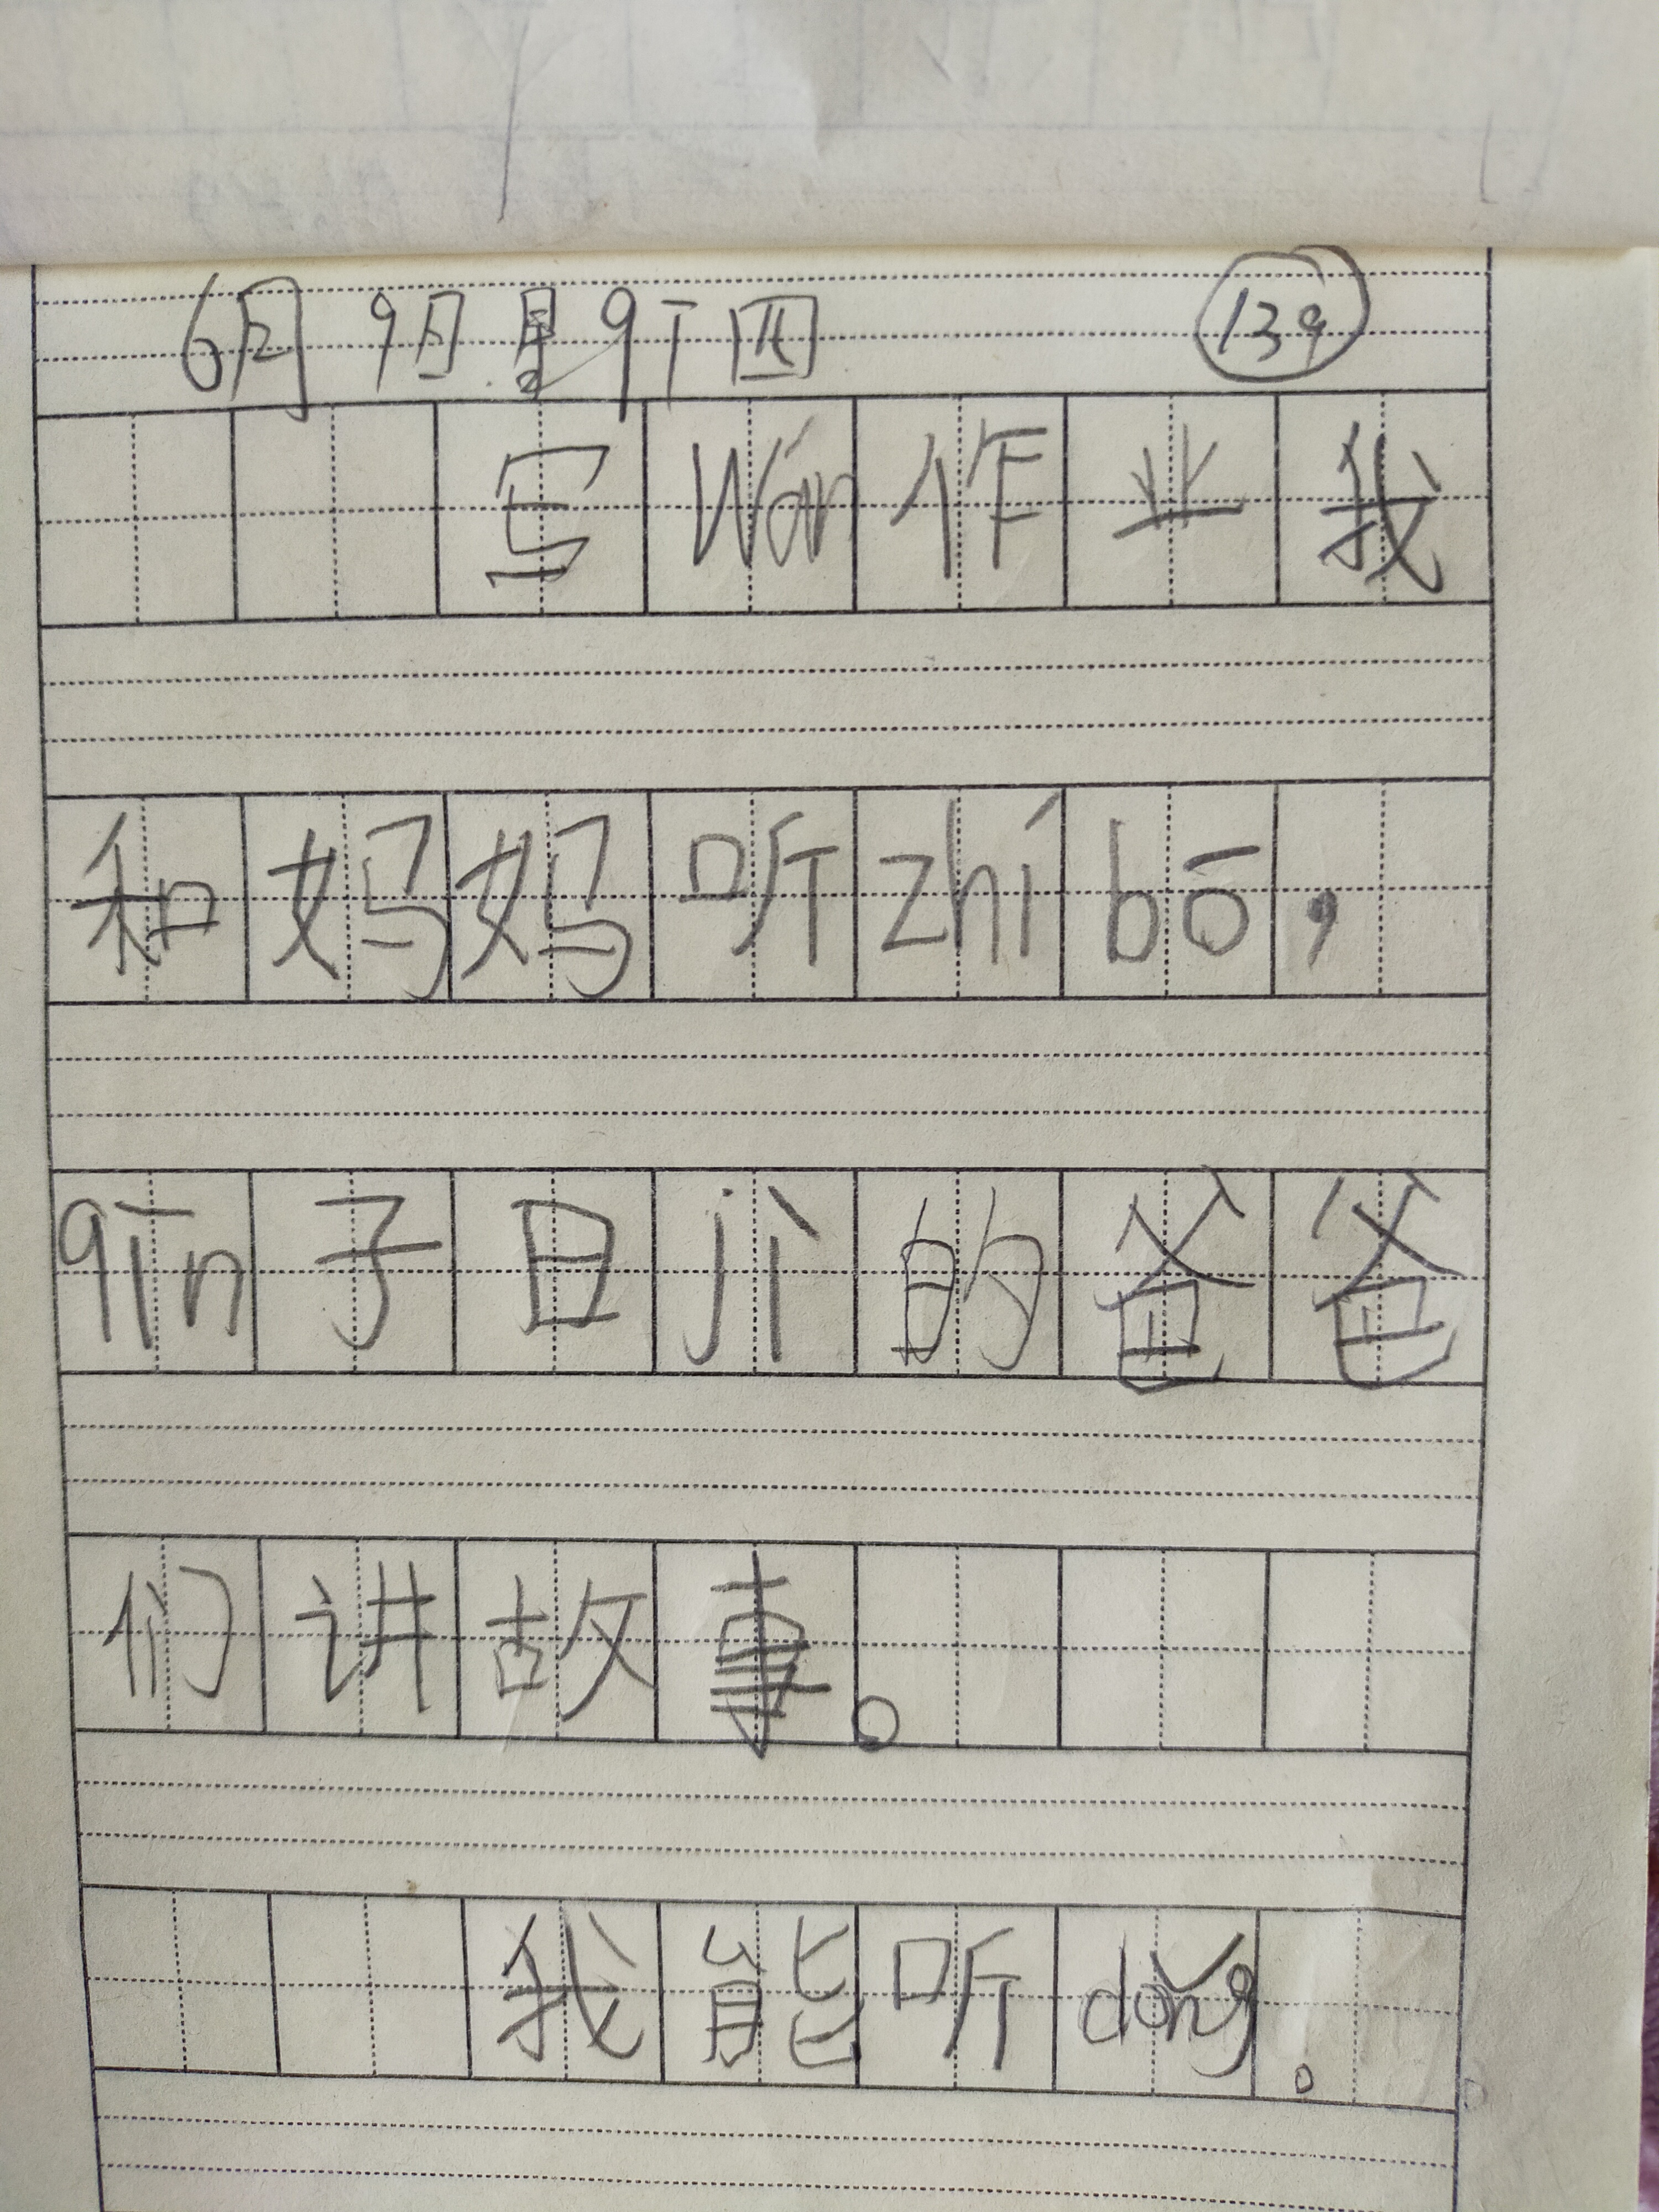 6月9日星期四 139
写wán作业我
和妈妈听zhíbō，
qīn子日jì的爸爸
们讲故事。
我能听dǒng。